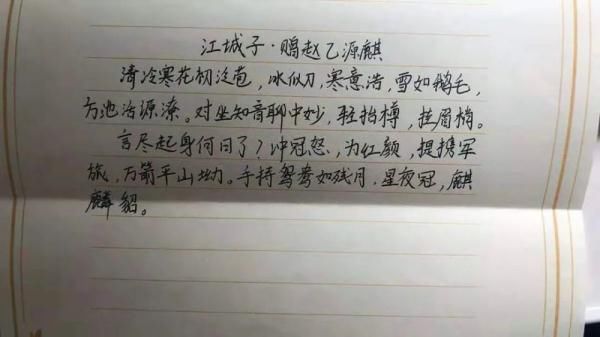 江城子·赐赵乙源麒
清冷寒花初泛苞，冰似刀，寒意浩，雪如鹅毛，
方池活源潦。对坐知音聊中妙，轻抬樽，挂眉梢。
言尽起身何日了？冲冠怒，为红颜，提携军
旅，万箭平山坳。手持鸳鸯如残月，星夜冠，麒
麟貂。